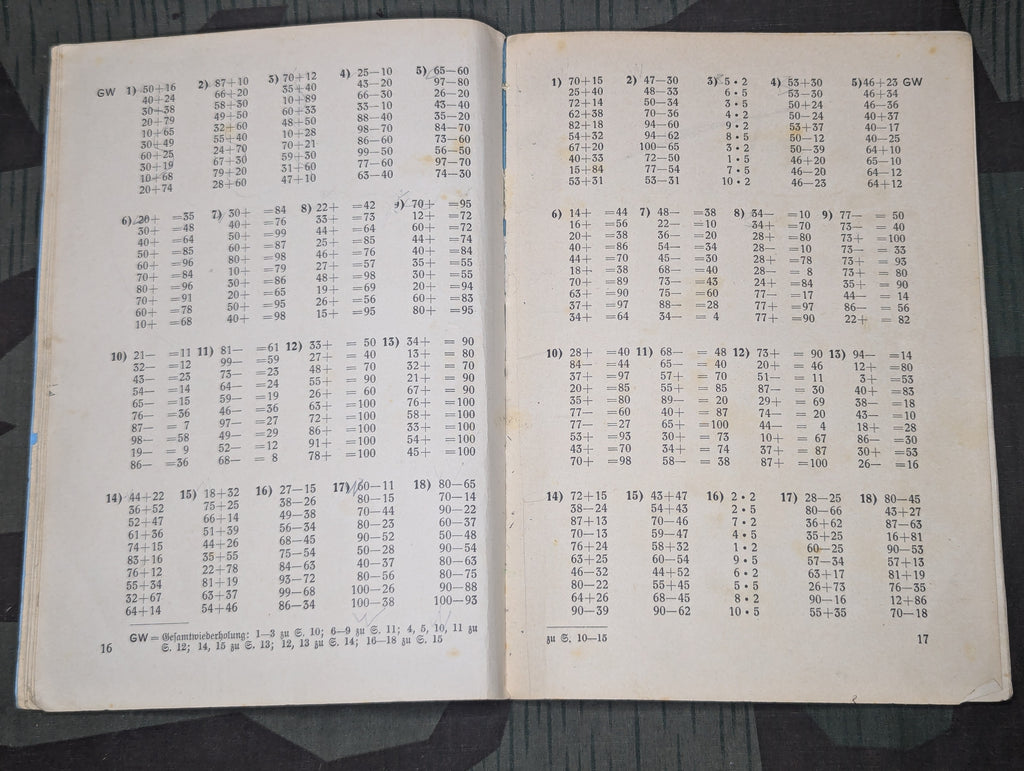 GW 1) 50+16 2) 87+10 3) 70+12 4) 25—10 5) 65—60
40+24 66+20 35+40 43—20 97—80
30+38 58+30 10+89 66—30 26—20
20+79 49+50 60+33 33—10 43—40
10+65 32+60 48+50 88—40 35—20
30+49 55+40 10+28 98—70 84—70
60+25 24+70 70+21 86—60 73—60
30+19 67+30 59+30 99—50 56—50
10+68 79+20 31+60 77—60 97—70
20+74 28+60 47+10 63—40 74—30
6) 20+ =35 7) 30+ =84 8) 22+ =42 9) 70+ =95
30+ =48 40+ =76 33+ =73 12+ =72
40+ =64 50+ =99 44+ =64 60+ =72
50+ =85 60+ =87 25+ =85 44+ =74
60+ =96 80+ =98 46+ =76 40+ =84
70+ =84 10+ =79 27+ =57 35+ =55
80+ =96 30+ =86 48+ =98 30+ =55
70+ =91 20+ =65 19+ =69 20+ =94
60+ =78 50+ =95 26+ =56 60+ =83
10+ =68 40+ =98 15+ =95 80+ =95
10) 21— =11 11) 81— =61 12) 33+ = 50 13) 34+ = 90
32— =12 99— =59 27+ = 40 13+ = 80
43— =23 73— =23 48+ = 70 32+ = 70
54— =14 64— =24 55+ = 90 21+ = 90
65— =15 59— =19 26+ = 60 67+ = 90
76— =36 46— =36 63+ =100 76+ =100
87— = 7 97— =27 72+ =100 58+ =100
98— =58 49— =29 86+ =100 33+ =100
19— = 9 52— =12 91+ =100 54+ =100
86— =36 68— = 8 78+ =100 45+ =100
14) 44+22 15) 18+32 16) 27—15 17) 60—11 18) 80—65
36+52 75+25 38—26 80—15 70—14
52+47 66+14 49—38 70—44 90—22
61+36 51+39 56—34 80—23 60—37
74+15 44+26 68—45 90—52 50—48
83+16 35+55 75—54 50—28 90—54
76+12 22+78 84—63 40—37 80—63
55+34 81+19 93—72 80—56 80—75
32+67 63+37 99—68 100—26 90—88
64+14 54+46 86—34 100—38 100—93
GW = Gesamtwiederholung: 1—3 zu S. 10; 6—9 zu S. 11; 4, 5, 10, 11 zu
S. 12; 14, 15 zu S. 13; 12, 13 zu S. 14; 16—18 zu S. 15
16
1) 70+15 2) 47—30 3) 5 • 2 4) 53+30 5) 46+23 GW
25+40 48—33 6 • 5 53—30 46+34
72+14 50—34 3 • 5 50+24 46—36
62+38 70—36 4 • 2 50—24 40+37
82+18 94—60 9 • 2 53+37 40—17
54+32 94—62 8 • 5 50—12 40—25
67+20 100—65 3 • 2 50—39 64+10
40+33 72—50 1 • 5 46+20 65—10
15+84 77—54 7 • 5 46—20 64—12
53+31 53—31 10 • 2 46—23 64+12
6) 14+ =44 7) 48— =38 8) 34— = 10 9) 77— = 50
16+ =56 22— =10 34+ = 70 73— = 40
20+ =38 36— =20 28+ = 80 73+ = 100
40+ =86 54— =34 28— = 10 73— = 33
44+ =70 45— =30 28+ = 78 73+ = 93
18+ =38 68— =40 28— = 8 73+ = 80
70+ =89 73— =43 24+ = 84 35+ = 90
63+ =90 75— =60 77— = 17 44— = 14
37+ =97 88— =28 77+ = 97 86— = 56
34+ =64 34— = 4 77+ = 90 22+ = 82
10) 28+ =40 11) 68— = 48 12) 73+ = 90 13) 94— =14
84— =44 65— = 40 20+ = 46 12+ =80
37+ =97 57+ = 70 51— = 11 3+ =53
20+ =85 55+ = 85 87— = 30 40+ =83
35+ =80 89— = 20 29+ = 69 38— =18
77— =60 40+ = 87 74— = 20 43— =10
77— =27 65+ =100 44— = 4 18+ =28
53+ =93 30+ = 73 10+ = 67 86— =30
43+ =70 34+ = 74 37+ = 87 30+ =53
70+ =98 58— = 38 87+ =100 26— =16
14) 72+15 15) 43+47 16) 2 • 2 17) 28—25 18) 80—45
38—24 54+43 2 • 5 80—66 43+27
87+13 70—46 7 • 2 36+62 87—63
70—13 59—47 4 • 5 35+25 16+81
76+24 58+32 1 • 2 60—25 90—53
63+25 60—54 9 • 5 57—34 57+13
46—32 44+52 6 • 2 63+17 81+19
80—22 55+45 5 • 5 26+73 76—35
64+26 68—45 8 • 2 90—16 12+86
90—39 90—62 10 • 5 55+35 70—18
zu S. 10—15
17